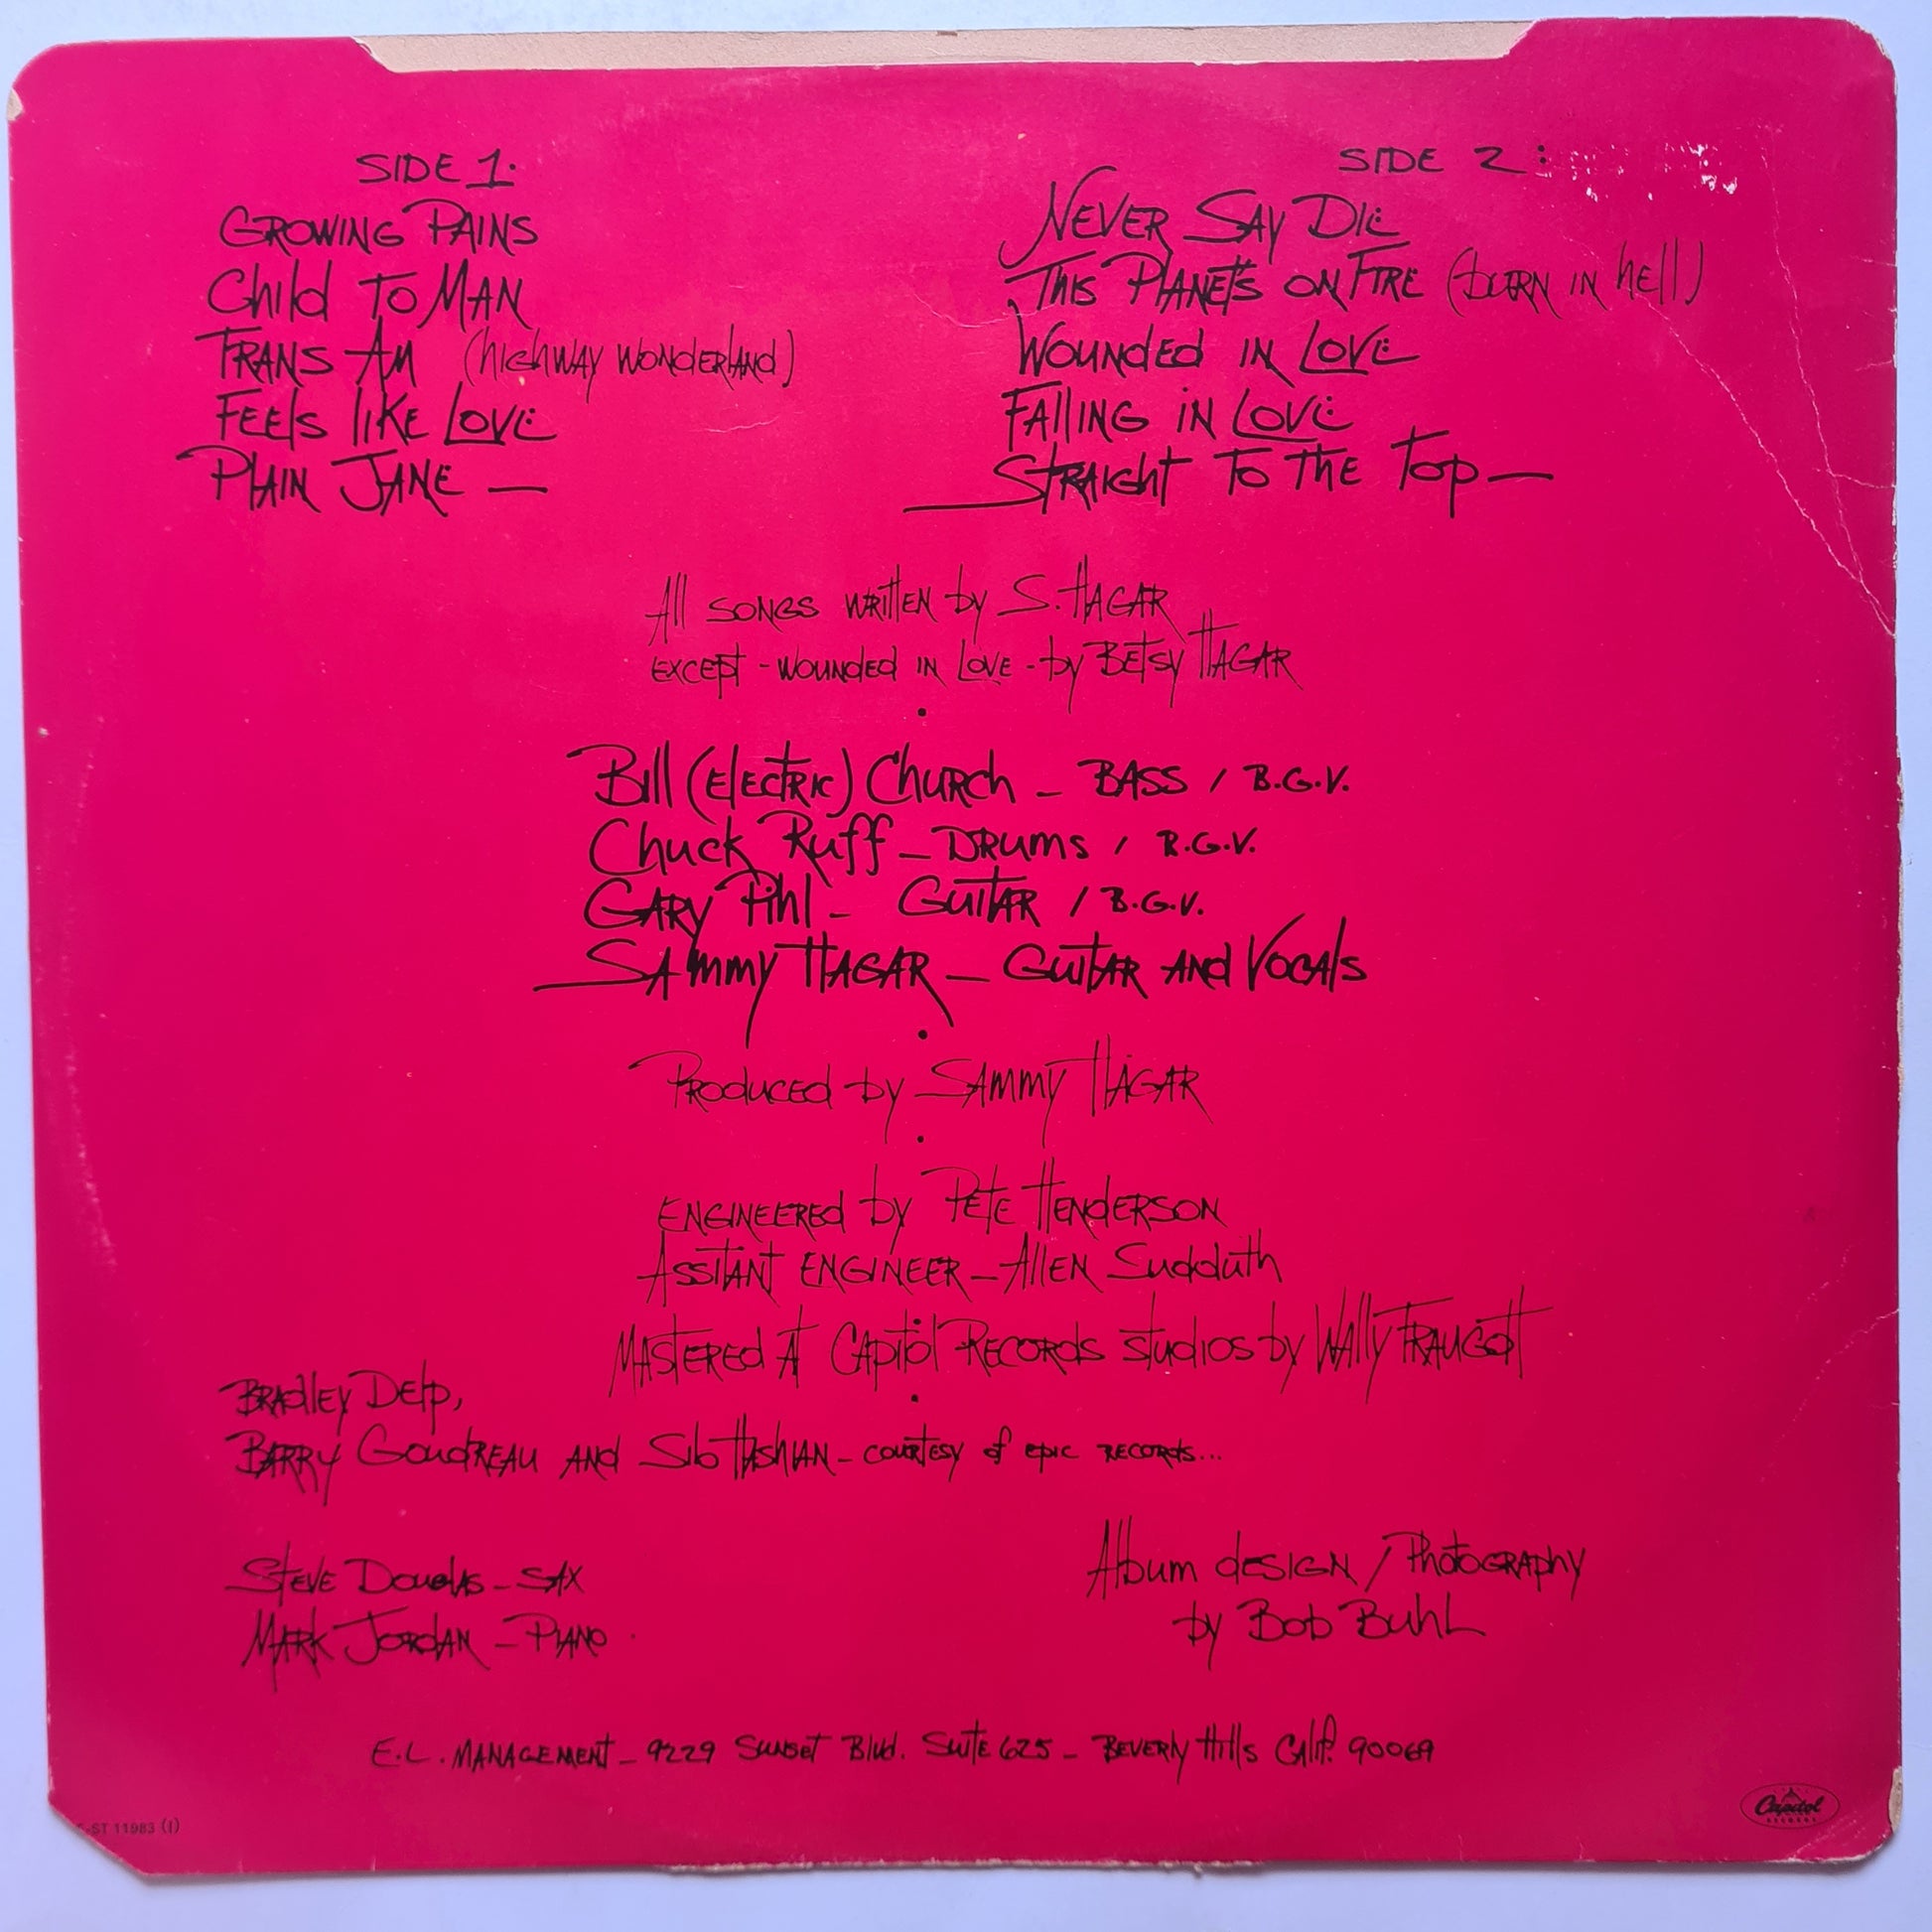 SIDE 1.
GROWING PAINS
Child TO MAN
TRANS AM (highway wonderland)
FEEls likE LOVE
PlAIN JANE —
SIDE 2:
NEVER SAY DIE
This PlANET'S ON FIRE (bURN IN hEll)
WOUNDEd IN LOVE
FAllING iN LOVE
STRAIGht TO ThE Top —
All SONGS WRittEN by S. HAGAR
EXCEPt - WOUNdEd IN LOVE - by BEtSy HAGAR
Bill (ElECtRIC) ChURCh – BASS / B.G.V.
Chuck Ruff – DRUMS / B.G.V.
GARY Pihl – GUitAR / B.G.V.
SAMMY HAGAR – GUitAR ANd VOCAlS
PRODUCEd by SAMMY HAGAR
ENGINEEREd by PETE HENdERSON
ASSITANT ENGINEER – AllEN Sudduth
MASTEREd AT CApitol RECORdS studios by WAlly TRAUGOtt
BRAdlEY DElp,
BARRY GOUdREAU ANd Sib HAShIAN – COURTESY of EPIC RECORdS...
STEVE DOUGlAS – SAX
MARK JORdAN – PIANO
Album dESIGN / PhotoGRAphy
by Bob BuhL
E.L. MANAGEMENT – 9229 SUNSET Blvd. SuitE 625 – BEVERly Hills CAlif. 90069
-ST 11983 (1)
Capitol
RECORDS